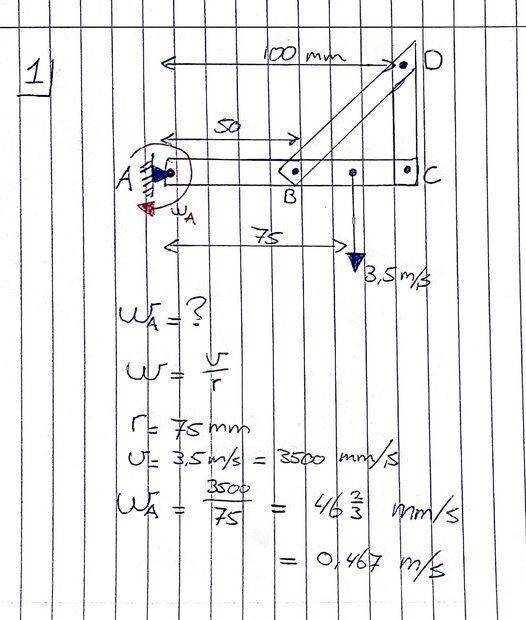 1
100 mm
D
50
A
B
C
ω_A
75
3,5 m/s
ω_A = ?
ω = v/r
r = 75 mm
v = 3,5 m/s = 3500 mm/s
ω_A = 3500/75 = 46 2/3 mm/s
= 0,467 m/s